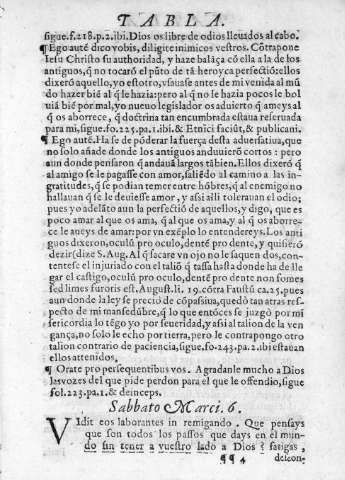 TABLA.
sigue.f.218.p.2.ibi.Dios os libre de odios lleuados al cabo.
¶ Ego autē dico vobis, diligite inimicos vestros. Cōtrapone
Iesu Christo su authoridad, y haze balāça cō ella a la de los
antiguos, q̄ no tocarō el pūto de tā heroyca perfectiō: ellos
dixerō aquello, yo estotro, vsauase antes de mi venida al mū
do hazer biē al q̄ le hazia: pero al q̄ no le hazia pocos le bol
uiā biē por mal, yo nueuo legislador os aduierto q̄ ameys al
q̄ os aborrece, q̄ doctrina tan encumbrada estaua reseruada
para mi, sigue.fo.225.pa.1.ibi.& Etnici faciūt, & publicani.
¶ Ego autē. Ha se de pōderar la fuerça desta aduersatiua, que
no solo añade donde los antiguos anduuierō cortos: pero
aun donde pensaron q̄ andauā largos tābien. Ellos dixerō q̄
al amigo se le pagasse con amor, saliēdo al camino a las in-
gratitudes, q̄ se podian temer entre hōbres, q̄ al enemigo no
hallauan q̄ se le deuiesse amor, y assi alli tolerauan el odio;
pues yo adelāto aun la perfectiō de aquellos, y digo, que es
poco amar al que os ama, q̄ al que os ama, y al q̄ os aborre-
ce le aueys de amar: por vn exēplo lo entendereys. Los anti
guos dixeron, oculū pro oculo, dentē pro dente, y quisierō
dezir (dize S. Aug. Al q̄ sacare vn ojo no le saquen dos, con-
tentese el injuriado con el taliō q̄ tassa hasta donde ha de lle
gar el castigo, oculū pro oculo, dentē pro dente non fomes
sed limes furoris est. August. li. 19. cōtra Faustū ca.25. pues
aun donde la ley se preciō de cōpassiua, quedō tan atras res-
pecto de mi mansedūbre, q̄ lo que entōces se juzgō por mi
sericordia lo tēgo yo por seueridad, y assi al talion de la ven
gança, no solo le echo por tierra, pero le contrapongo otro
talion contrario de paciencia, sigue.fo.243.pa.2.ibi estauan
ellos attenidos.
¶ Orate pro persequentibus vos. Agradanle mucho a Dios
las vozes del que pide perdon para el que le offendio, sigue
fol.223.pa.1.& deinceps.
Sabbato Marci. 6.
VIdit eos laborantes in remigando. Que pensays
que son todos los passos que days en el mun-
do sin tener a vuestro lado a Dios? fatigas,
¶¶ 4 descon-